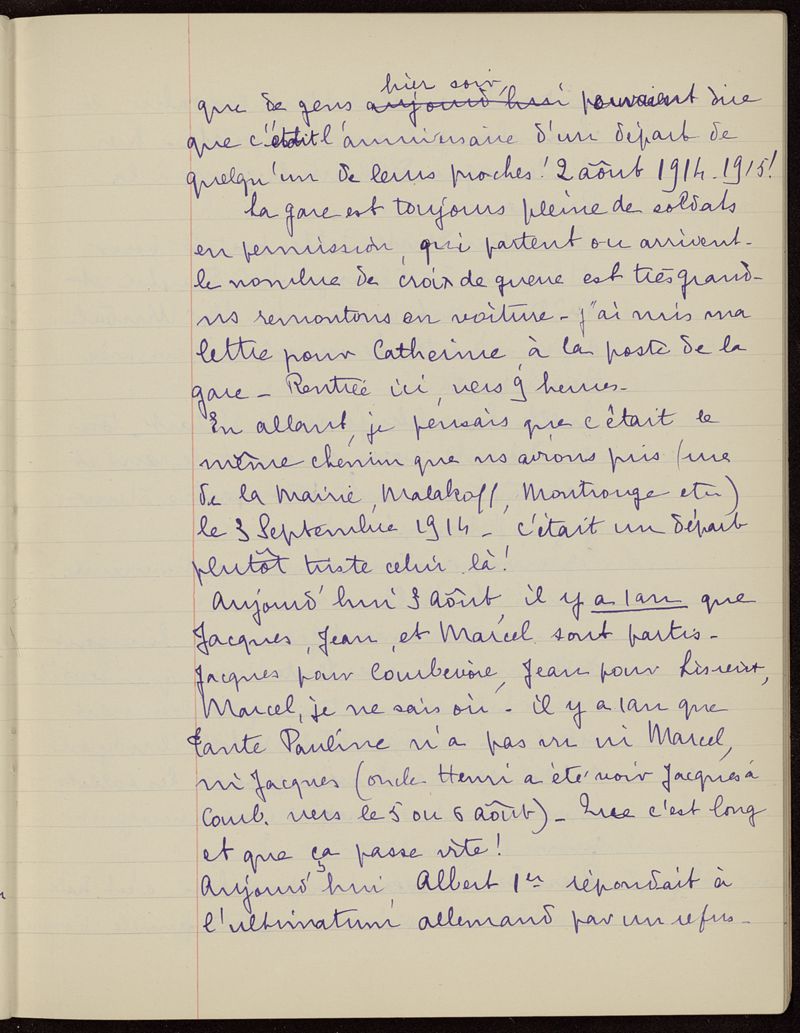 hier soir
que de gens aujourd'hui pouvaient dire
que c'était l'anniversaire d'un départ de
quelqu'un de leurs proches! 2 août 1914-1915!
La gare est toujours pleine de soldats
en permission, qui partent ou arrivent-
le nombre de croix de guerre est très grand-
ns remontons en voiture - j'ai mis ma
lettre pour Catherine, à la poste de la
gare - Rentrée ici, vers 9 heures-
En allant, je pensais que c'était le
même chemin que ns avions pris (rue
de la Mairie, Malakoff, Montrouge etc)
le 3 Septembre 1914 - c'était un départ
plutôt triste celui là!
Aujourd'hui 3 Août, il y a 1 an que
Jacques, Jean, et Marcel sont partis-
Jacques pour Courbevoie, Jean pour Lisieux,
Marcel, je ne sais où - il y a 1 an que
Tante Pauline n'a pas vu ni Marcel,
ni Jacques (oncle Henri a été voir Jacques à
Courb. vers le 5 ou 6 août) - Que c'est long
et que ça passe vite!
Aujourd'hui Albert 1er répondait à
l'ultimatum allemand par un refus-